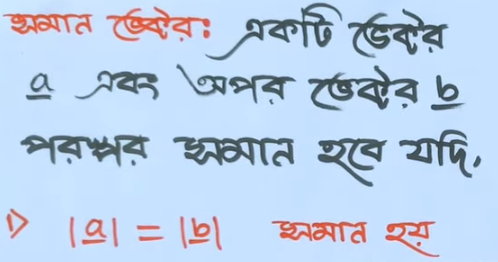 সমান ভেক্টর: একটি ভেক্টর
a̲ এবং অপর ভেক্টর b̲
পরস্পর সমান হবে যদি,
1> |a̲| = |b̲| সমান হয়